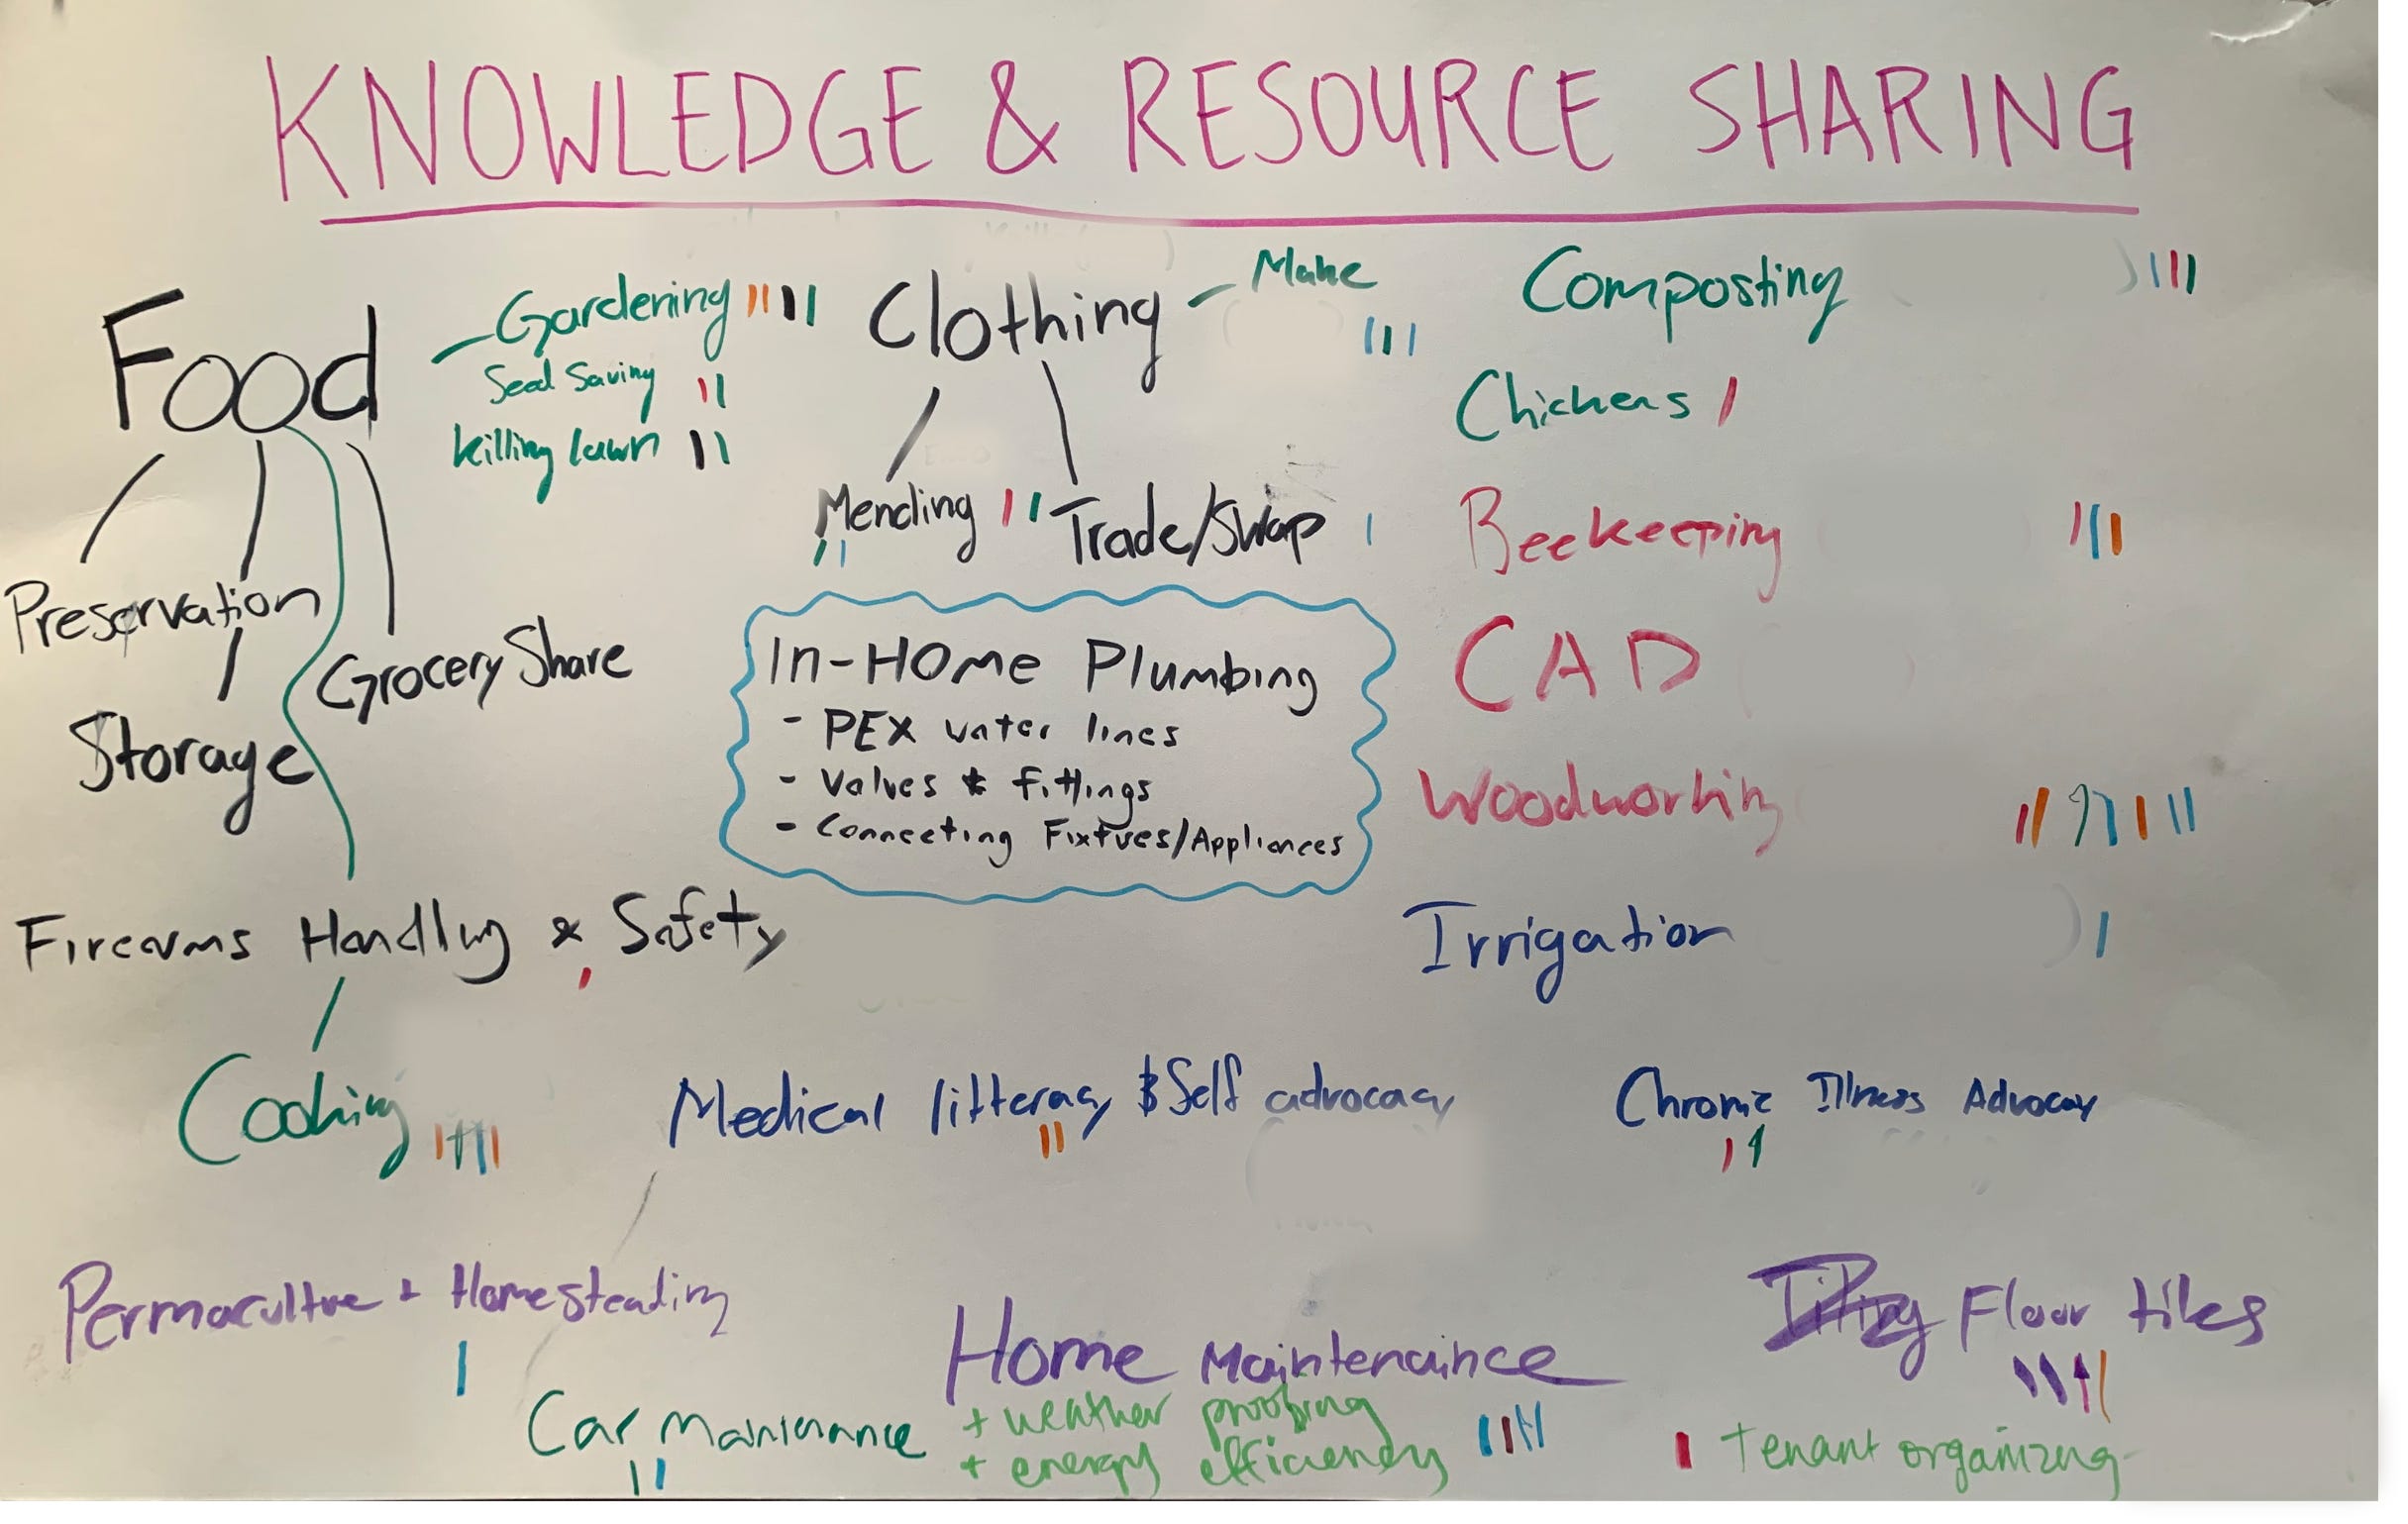 KNOWLEDGE & RESOURCE SHARING
Food
Gardening
Seed Saving
killing lawn
Clothing
Make
Mending
Trade/Swap
Preservation
Storage
Grocery Share
In-HOme Plumbing
- PEX water lines
- Valves & fittings
- Connecting Fixtures/Appliances
Composting
Chickens
Beekeeping
CAD
Woodworking
Irrigation
Firearms Handling & Safety
Cooking
Medical litteracy & Self advocacy
Chronic Illness Advocacy
Permaculture + Homesteading
Home Maintenaince
+ weather proofing
+ energy efficiency
Car Maintenance
Floor tiles
Tenant organizing